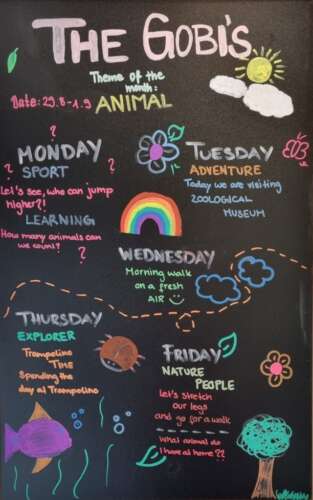 THE GOBI'S
Theme of the
month:
Date: 29.8-1.9 ANIMAL
MONDAY
SPORT
Let's see, who can jump
higher?!
LEARNING
How many animals can
we count?
TUESDAY
ADVENTURE
Today we are visiting
ZOOLOGICAL
MUSEUM
WEDNESDAY
Morning walk
on a fresh
AIR
THURSDAY
EXPLORER
Trampoline
TIME
Spending the
day at Trampolino
FRIDAY
NATURE
PEOPLE
Let's stretch
our legs
and go for a walk
What animal do
I have at home??